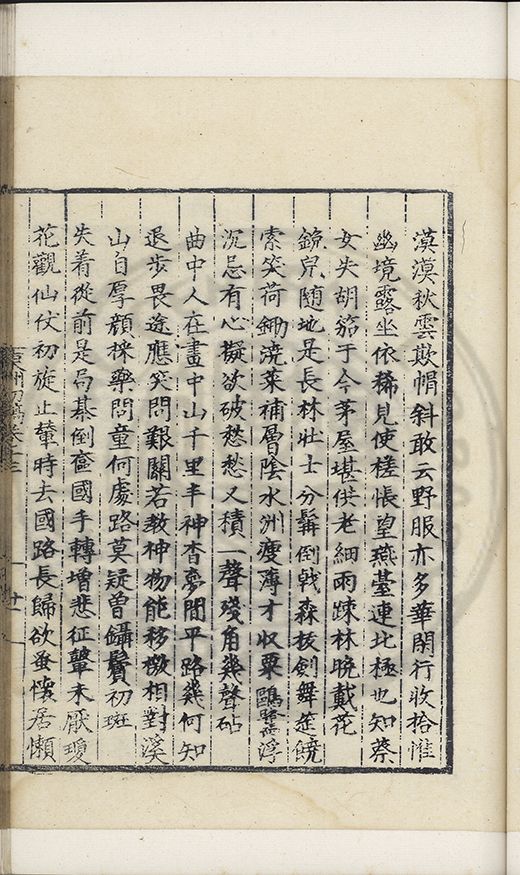 漠漠秋雲欺帽斜敢云野服亦多華閑行收拾惟
幽境露坐依稀見使槎悵望燕臺連北極也知蔡
女失胡笳于今茅屋堪供老細雨踈林晚戴花
鏡兒随地是長林壯士分髯倒戟森拔劍舞筵饒
索笑荷鋤澆菜補層陰水洲瘦薄才收粟鷗鷺浮
沉忌有心擬欲破愁愁又積一聲殘角幾聲砧
曲中人在畫中山千里丰神杳夢間平路幾何知
退步畏途應笑問艱關若教神物能移檄相對溪
山自厚顔採藥問童何處路莫疑曾鑷鬢初斑
失着從前是局碁倒奩國手轉增悲征鼙未厭瓊
花觀仙仗初旋止輦時去國路長歸欲蚤懷居懶
州初稿卷十三
廿一